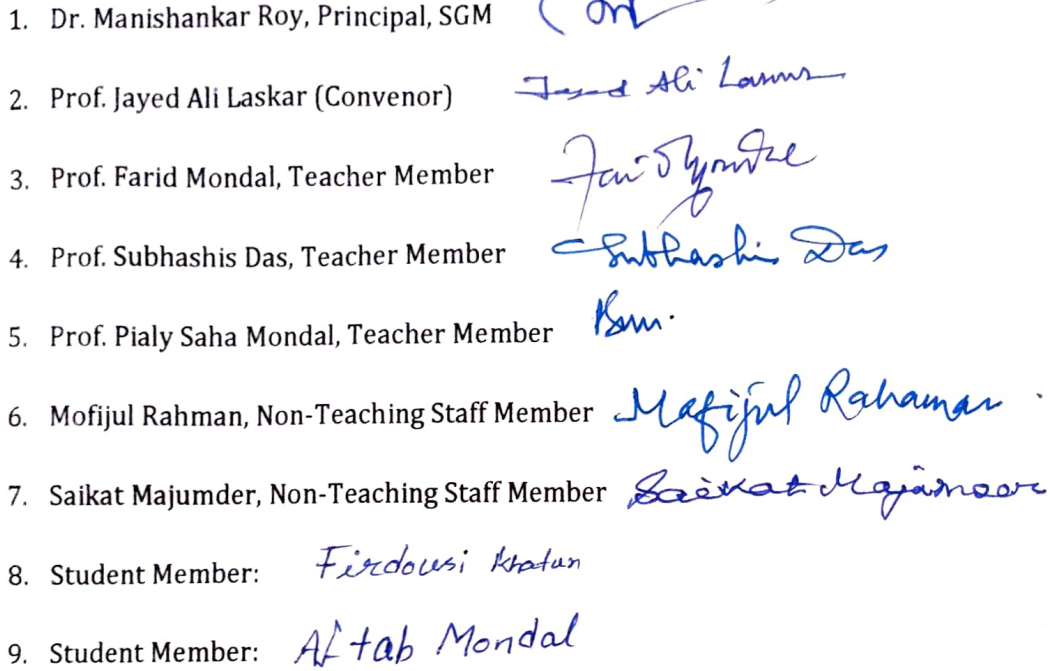 1. Dr. Manishankar Roy, Principal, SGM
2. Prof. Jayed Ali Laskar (Convenor) Jayed Ali Laskar
3. Prof. Farid Mondal, Teacher Member Farid Mondal
4. Prof. Subhashis Das, Teacher Member Subhashis Das
5. Prof. Pialy Saha Mondal, Teacher Member
6. Mofijul Rahman, Non-Teaching Staff Member Mafijul Rahaman
7. Saikat Majumder, Non-Teaching Staff Member Saikat Majumder
8. Student Member: Firdousi Khatun
9. Student Member: Aftab Mondal